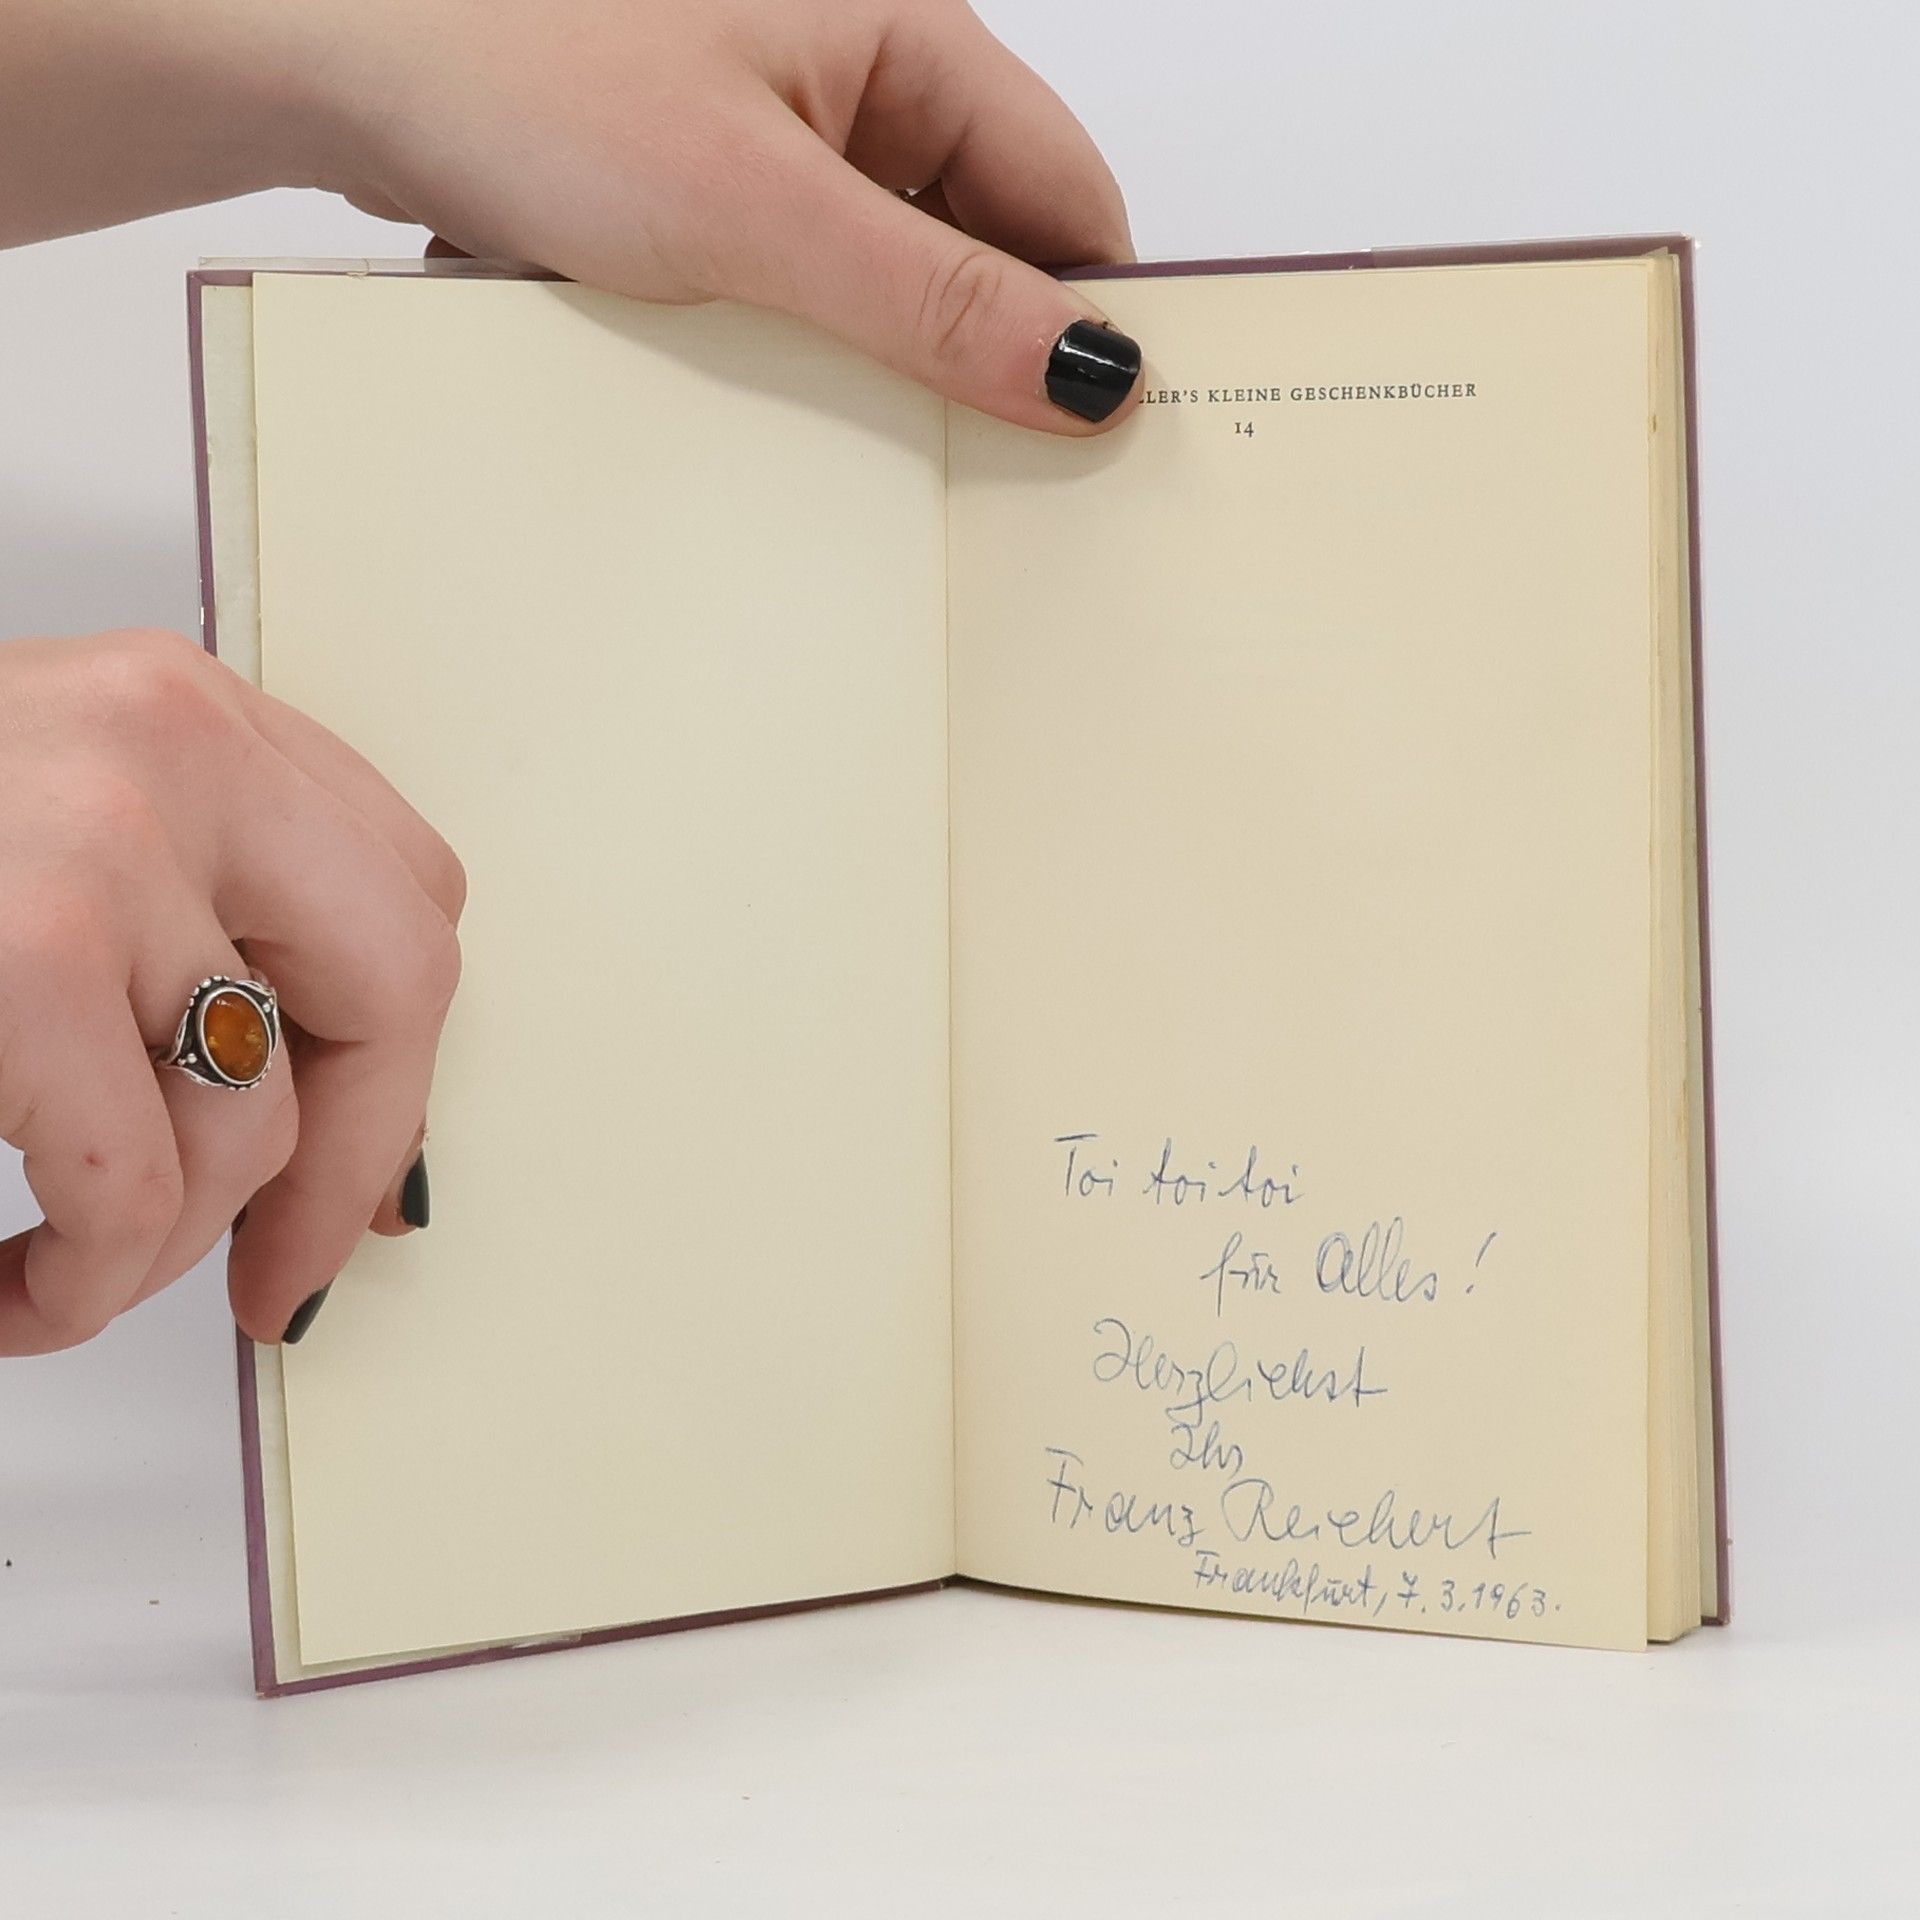 LLER'S KLEINE GESCHENKBÜCHER
14
Toi toi toi
für Alles!
Herzlichst
Ihr
Franz Reichert
Frankfurt, 7.3.1963.